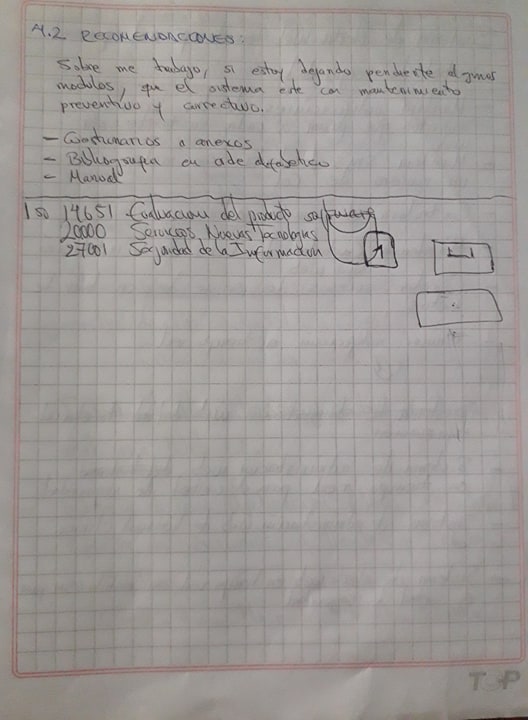 4.2 RECOMENDACIONES:
Sobre me trabajo, si estoy dejando pendiente algunos
modulos, que el sistema este con mantenimiento
preventivo y correctivo.
- Cuestionarios a anexos
- Bibliografia en alfabetico
- Manual
Iso 14651 Evaluacion del producto software
20000 Servicios Nuevas Tecnologias
27001 Seguridad de la Informacion
TOP